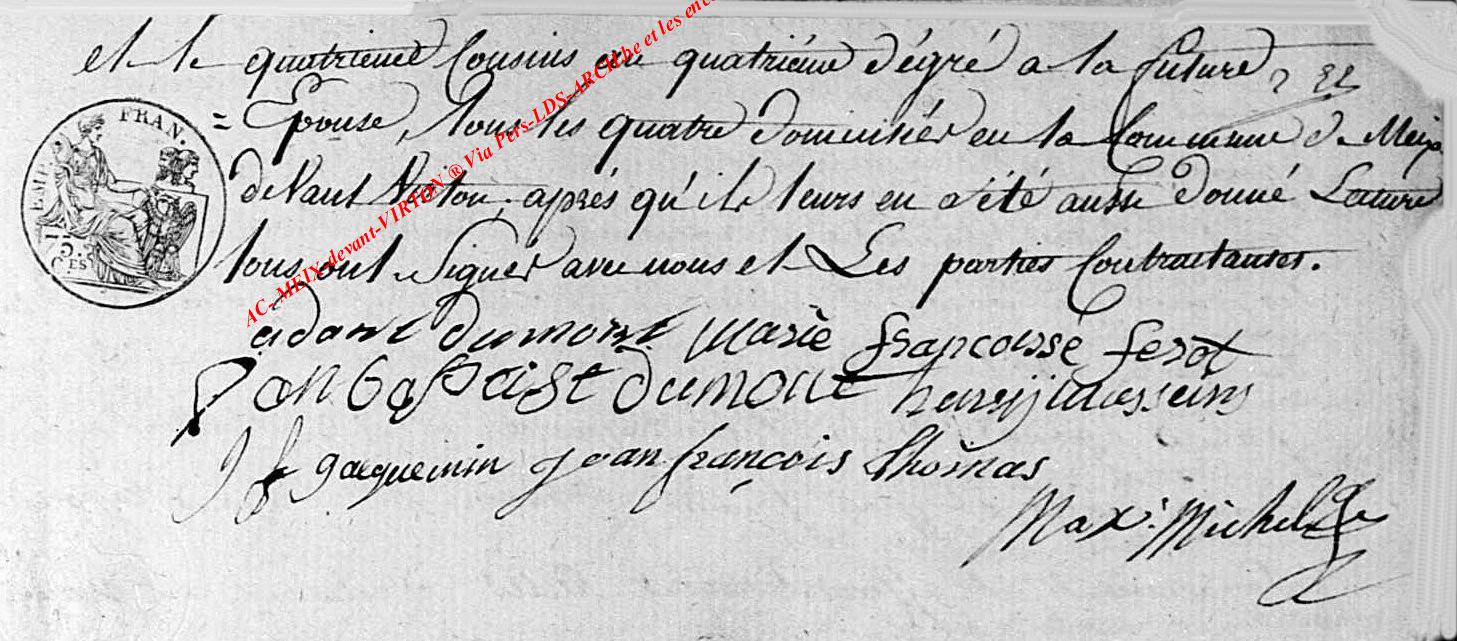 et le quatrieme Cousins au quatriéme dégré a la future
= Epouse, tous les quatre domiciliés en la Commune de Meix
devant Virton, aprés qu'il leurs en a été aussi donné Lecture
tous ont Signer avec nous et Les parties Contractantes.
EMP. FRAN.
75.
CES
adam dumont marie francoisse ferot
Jan bapaist dumont henrij
J f jacquemin jean françois thomas
Max. Michel
AC-MEIX-devant-VIRTON ® Via Pers-LDS-ARCH.be et les enc